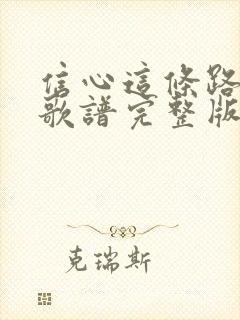 信心這條路
歌譜完整版
克瑞斯